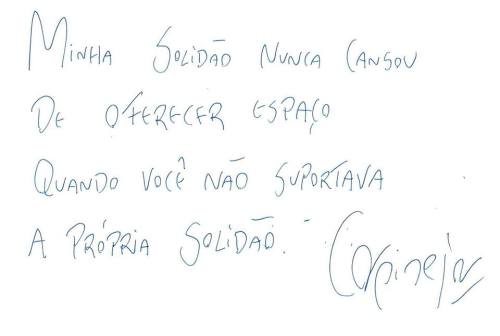 MINHA SOLIDÃO NUNCA CANSOU
DE OFERECER ESPAÇO
QUANDO VOCÊ NÃO SUPORTAVA
A PRÓPRIA SOLIDÃO.
Carpinejar